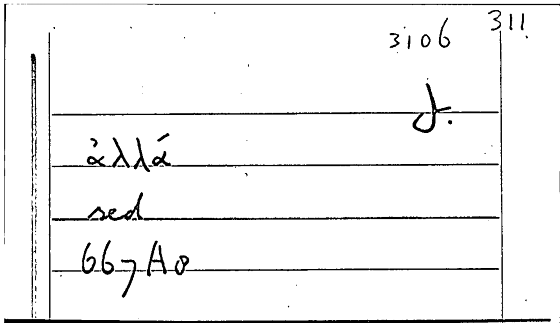 3106 311
d.
ἀλλά
sed
667A8